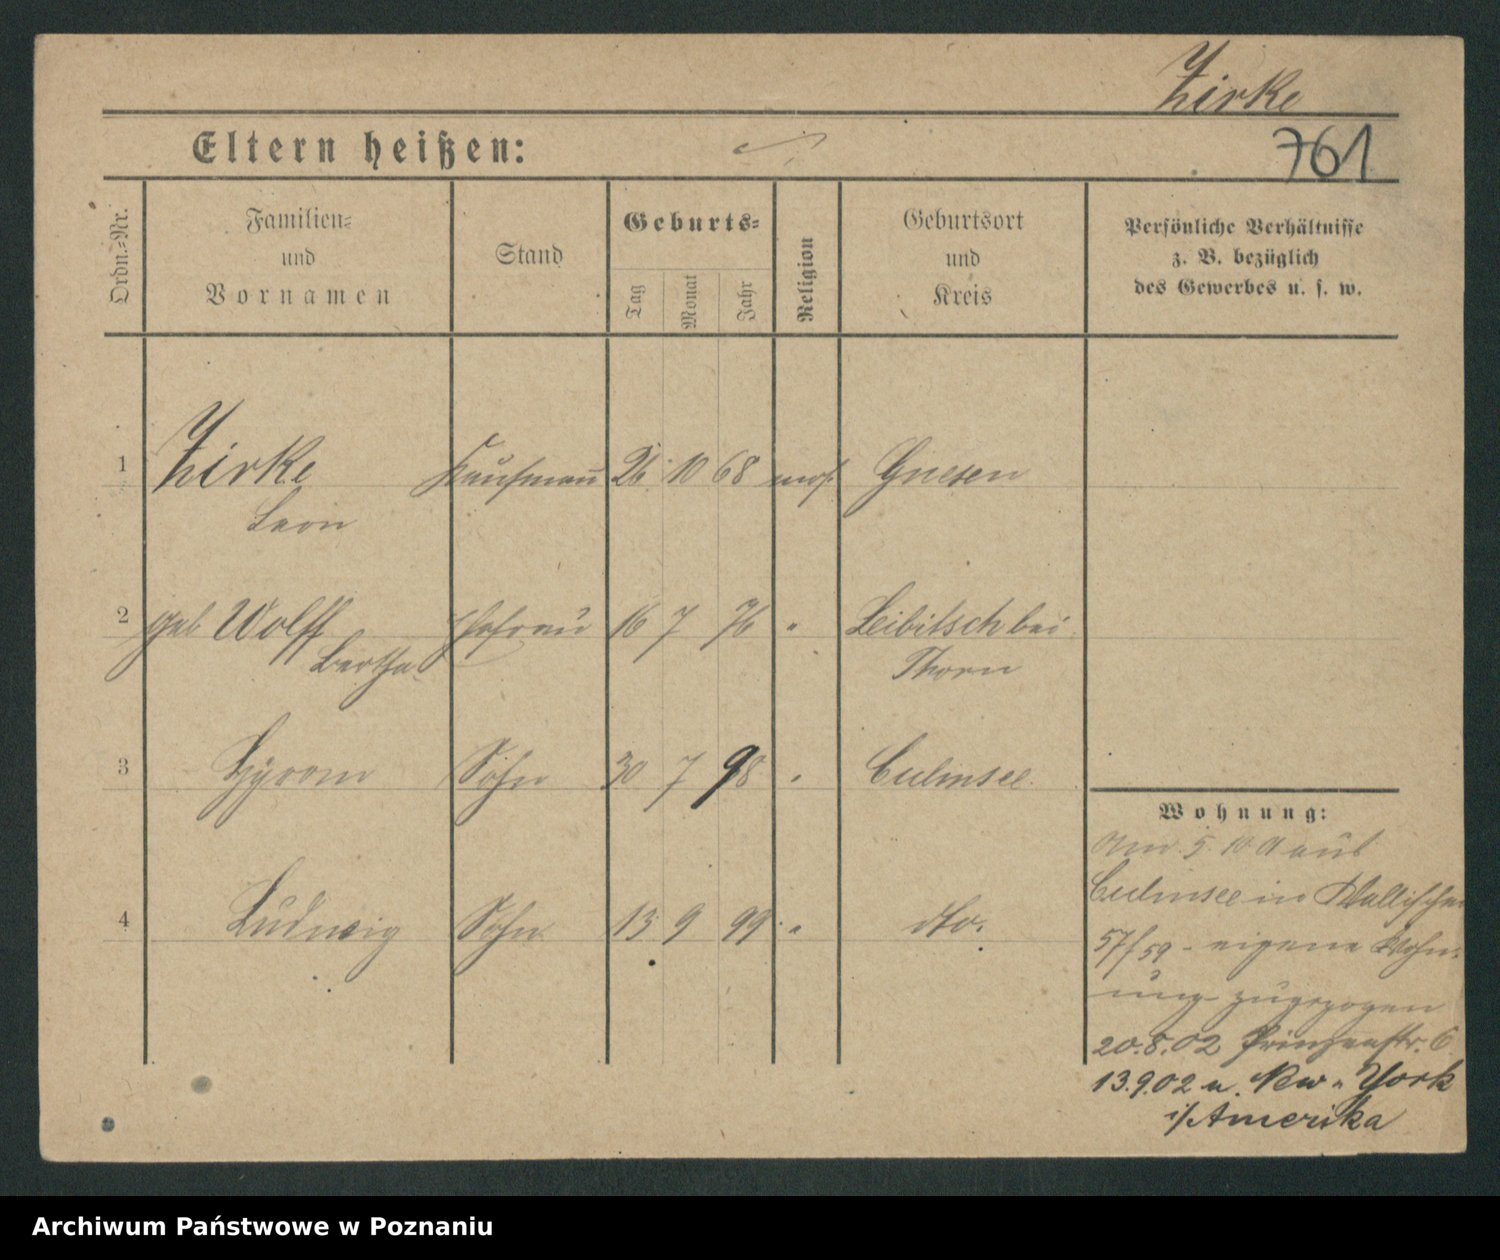 Zirke
Eltern heißen:
761
Ordn.=Nr.
Familien=
und
Vornamen
Stand
Geburts=
Tag
Monat
Jahr
Religion
Geburtsort
und
Kreis
Persönliche Verhältnisse
z. B. bezüglich
des Gewerbes u. s. w.
1 Zirke Kaufmann 26 10 68 mos. Gnesen
Leon
2 geb Wolff Ehefrau 16 7 76 " Leibitsch bei
Bertha Thorn
3 Sohn 30 7 98 " Culmsee
4 Ludwig Sohn 13 9 99 " dto.
Wohnung:
Am 5 10 aus
Culmsee in Wallischei
57/59 - eigene Wohn-
ung zugezogen
20.8.02 Prinzenstr. 6
13.9.02 n. New-York
i/Amerika
Archiwum Państwowe w Poznaniu